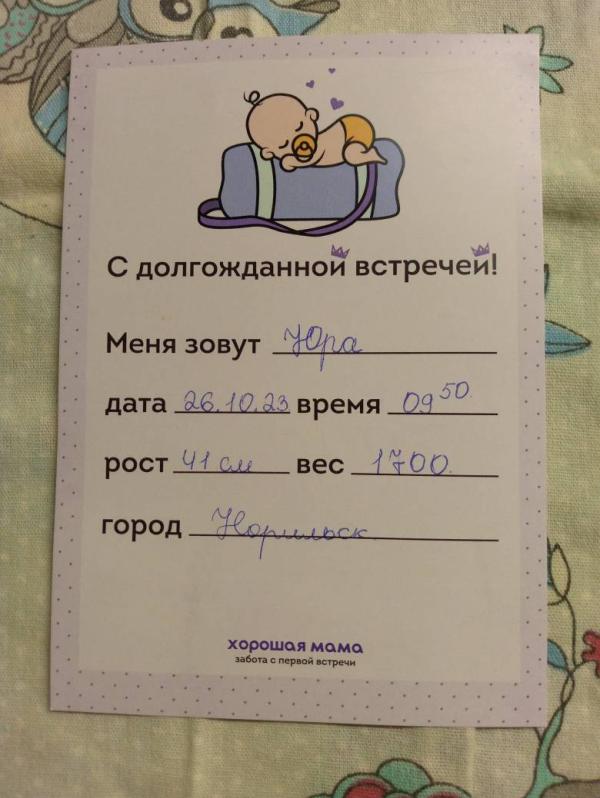 С долгожданной встречей!
Меня зовут Юра
дата 26.10.23 время 09 50
рост 41 см вес 1700.
город Норильск
хорошая мама
забота с первой встречи